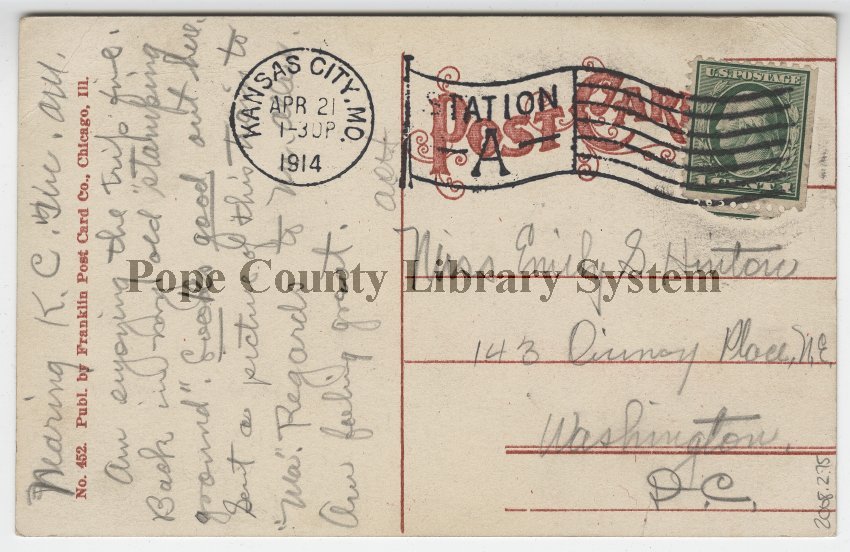 Nearing K.C.
No. 452. Publ. by Franklin Post Card Co., Chicago, Ill.
Am enjoying the trip fine.
Back in my old "stamping
ground". Looks good out here.
Sent a picture of this to
"Ma". Regards to
Am feeling great.
KANSAS CITY, MO.
APR 21
1-30P
1914
STATION
A
POST CARD
U.S. POSTAGE
Miss Emily G. Hinton
143 Quincy Place, N.E.
Washington,
D.C.
Pope County Library System
2008.2.75